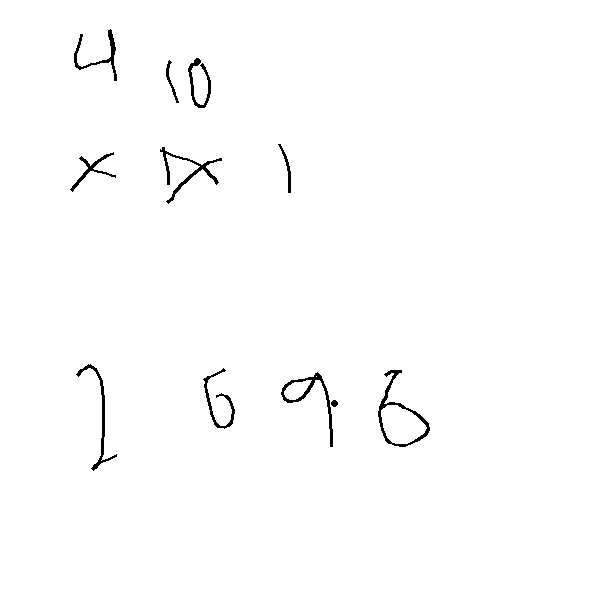 4 10
x 1
2 6 9. 6